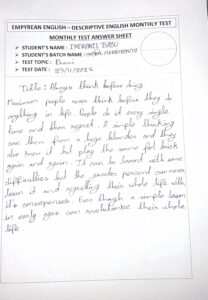 EMPYREAN ENGLISH – DESCRIPTIVE ENGLISH MONTHLY TEST
MONTHLY TEST ANSWER SHEET
➢ STUDENT'S NAME : INDRANIL BASU
➢ STUDENT'S BATCH NAME :
➢ TEST TOPIC :
➢ TEST DATE : 29/11/2025
Title: Always think before doing
Maximum people even think before they do
anything in life. People do it every single
time and then regret. A simple thinking
can them from a huge blunder and they
also know it but play the same fool back
again and again. It can be learnt with some
difficulties but the greater percent can never
learn it and regretting their whole life with
it's consequences. Even though a simple lesson
in early age can revolutionize their whole
life.